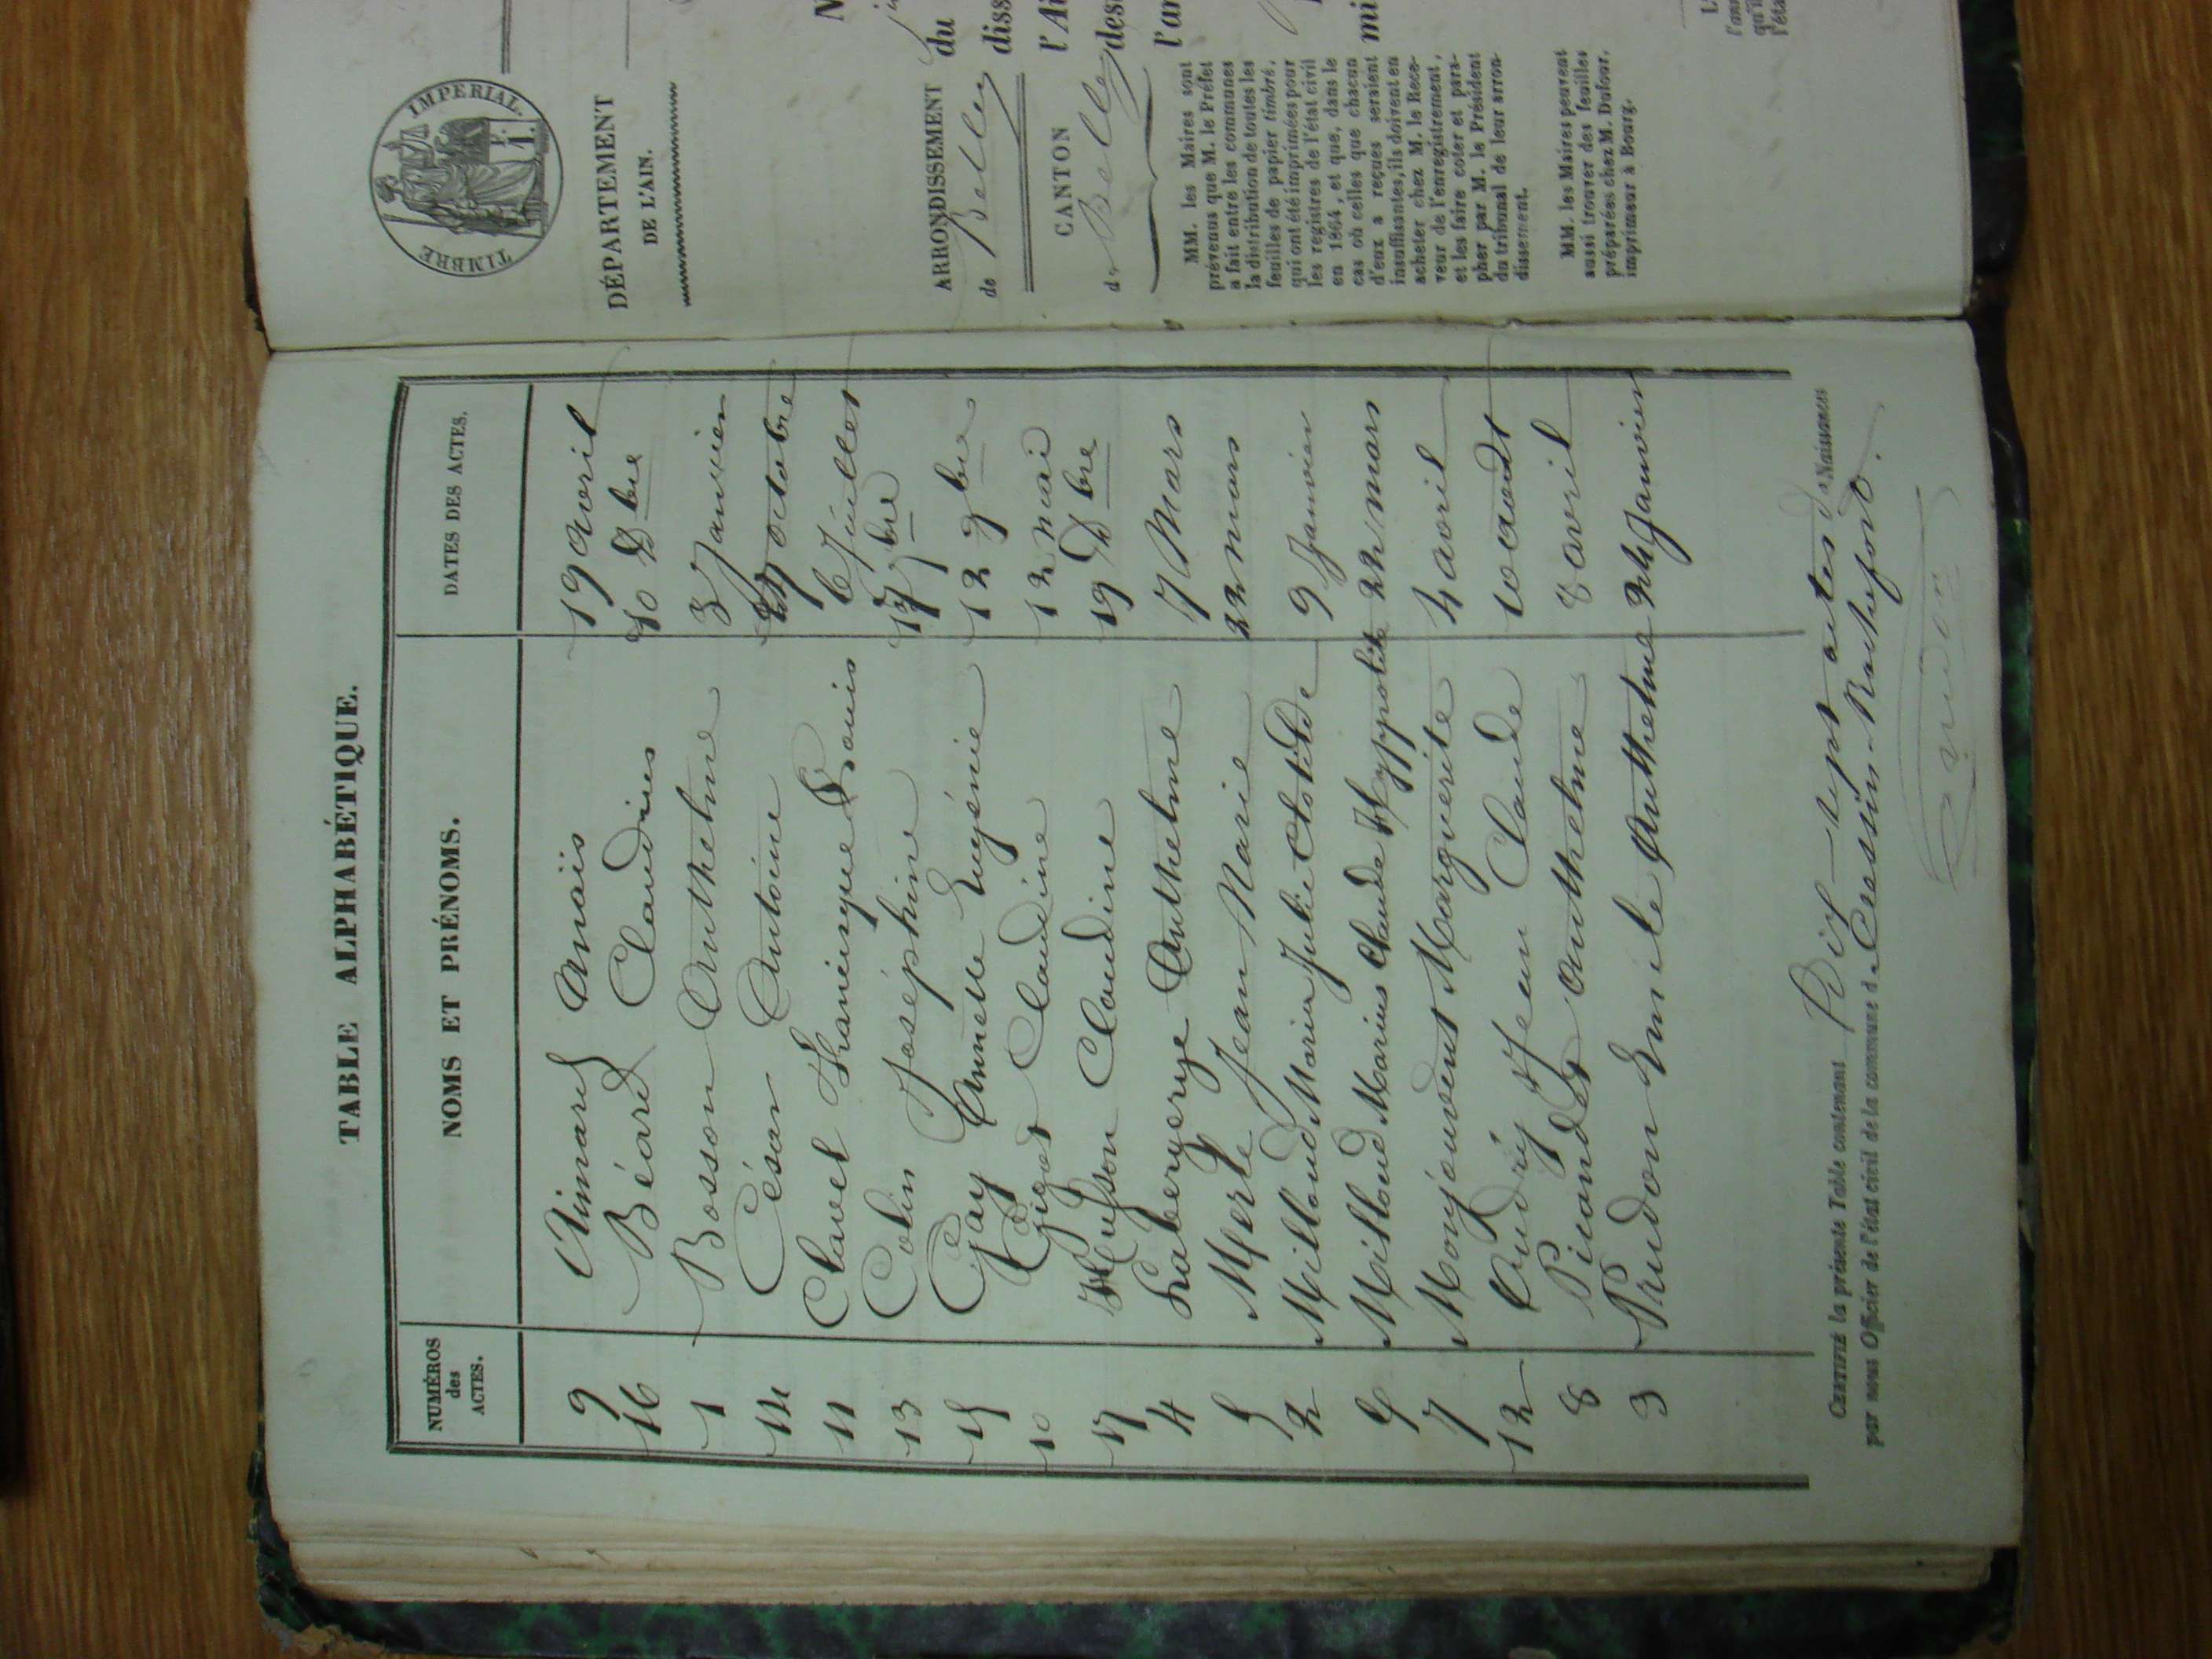 TABLE ALPHABÉTIQUE.
NUMÉROS des ACTES. NOMS ET PRÉNOMS. DATES DES ACTES.
9 Aimard Anaïs 19 avril
16 Béard Claudius 10 Dbre
1 Bosson Anthelme 3 Janvier
14 César Antoine 27 octobre
11 Clavel François Louis 6 Juillet
13 Colin Joséphine 17 7bre
15 Gay Annette Eugénie 12 9bre
10 Gigot Claudine 12 mai
17 Husson Claudine 19 Dbre
4 Laberyerye Anthelme 7 Mars
5 Merle Jean Marie 22 mars
2 Milloud Marie Julie Clotilde 9 Janvier
6 Milloud Marius Claude Hyppolite 22 mars
7 Monjouvent Marguerite 4 avril
12 Oudry Jean Claude 10 août
8 Picandet Anthelme 8 avril
3 Prudon Emile Anthelme 24 Janvier
CERTIFIÉ la présente Table contenant Dix-sept actes de Naissances
par nous Officier de l'état civil de la commune de Cressin-Rochefort.
TIMBRE IMPERIAL
1 F.
DÉPARTEMENT
DE L'AIN.
ARRONDISSEMENT
de Belley
CANTON
de Belley
MM. les Maires sont
prévenus que M. le Préfet
a fait entre les communes
la distribution de toutes les
feuilles de papier timbré,
qui ont été imprimées pour
les registres de l'état civil
en 1864, et que, dans le
cas où celles que chacun
d'eux a reçues seraient
insuffisantes, ils doivent en
acheter chez M. le Rece-
veur de l'enregistrement,
et les faire coter et para-
pher par M. le Président
du tribunal de leur arron-
dissement.
MM. les Maires peuvent
aussi trouver des feuilles
préparées chez M. Dufour,
imprimeur à Bourg.
N
du
diss
l'Ai
des
l'an
mi
L
l'ann
qu'il
l'éta